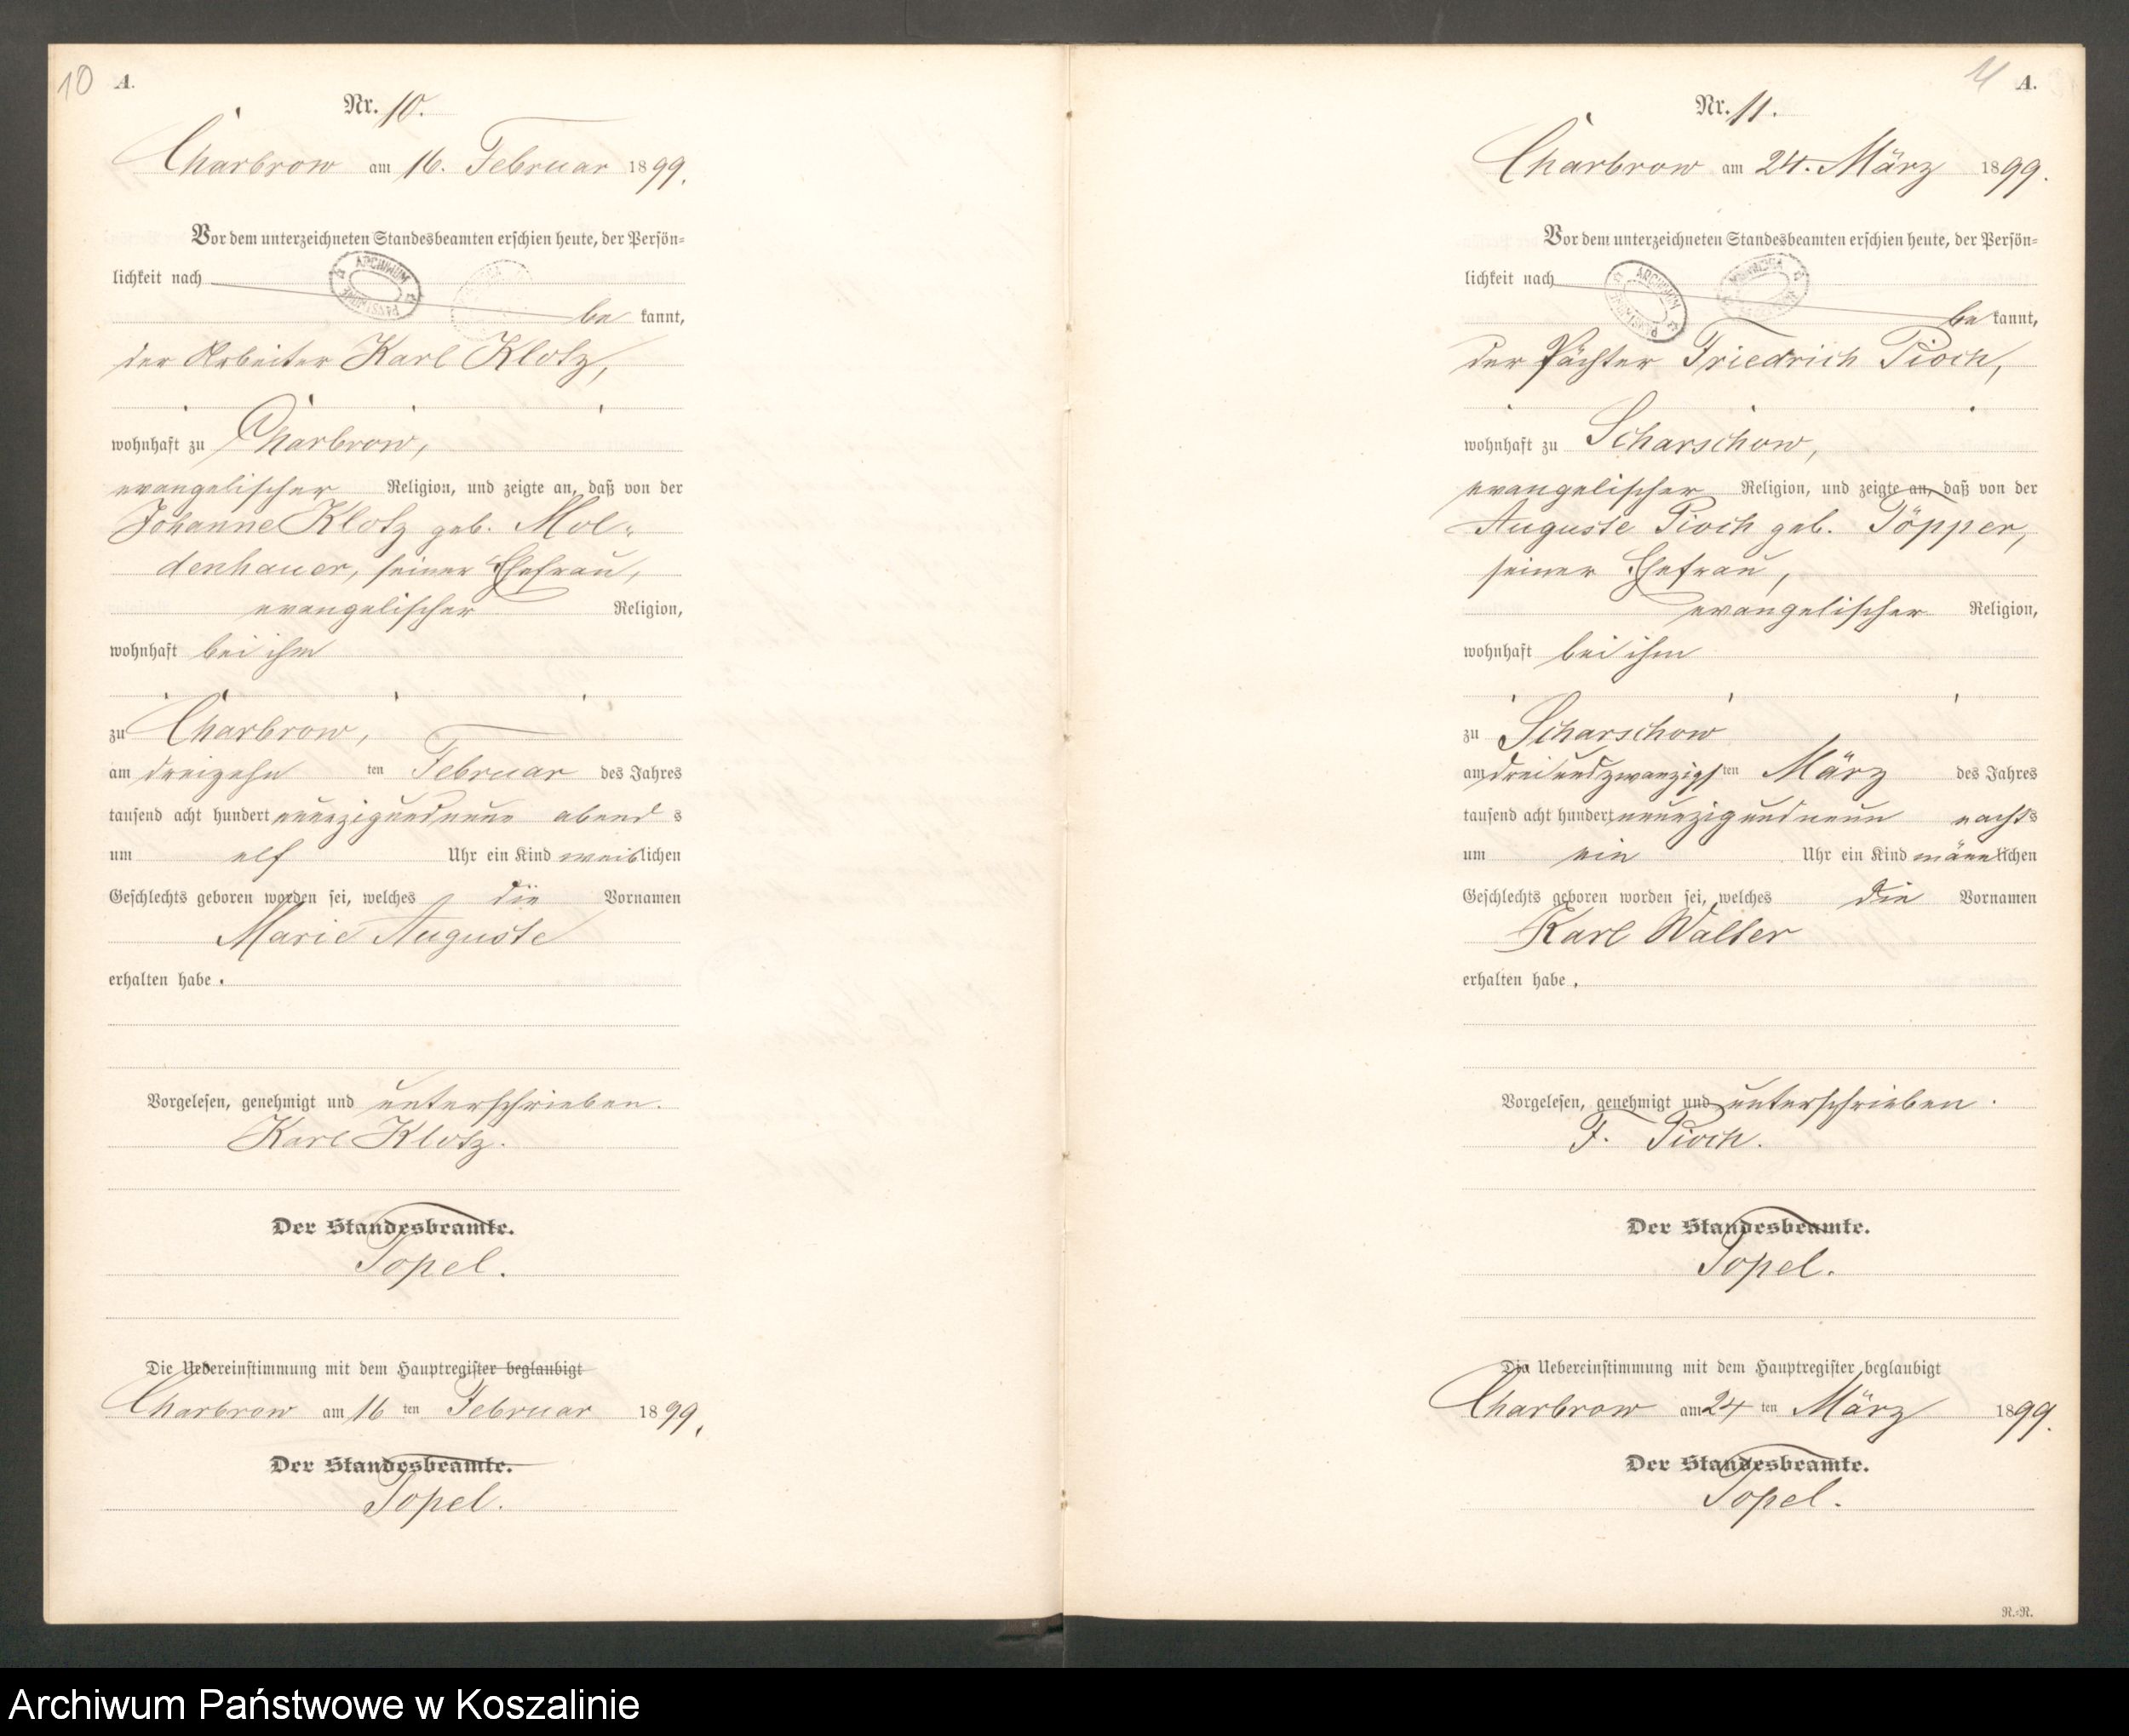 10 A.
Nr. 10.
Charbrow am 16. Februar 1899.
Vor dem unterzeichneten Standesbeamten erschien heute, der Persön=
lichkeit nach
ARCHIWUM
be kannt,
der Arbeiter Karl Klotz,
wohnhaft zu Charbrow,
evangelischer Religion, und zeigte an, daß von der
Johanne Klotz geb. Mol=
denhauer, seiner Ehefrau,
evangelischer Religion,
wohnhaft bei ihm
zu Charbrow,
am dreizehn ten Februar des Jahres
tausend acht hundert neunzigundneun abend s
um elf Uhr ein Kind weiblichen
Geschlechts geboren worden sei, welches die Vornamen
Marie Auguste
erhalten habe.
Vorgelesen, genehmigt und unterschrieben.
Karl Klotz.
Der Standesbeamte.
Topel.
Die Uebereinstimmung mit dem Hauptregister beglaubigt
Charbrow am 16 ten Februar 1899,
Der Standesbeamte.
Topel.
11 A.
Nr. 11.
Charbrow am 24. März 1899.
Vor dem unterzeichneten Standesbeamten erschien heute, der Persön=
lichkeit nach
ARCHIWUM
be kannt,
der Pächter Friedrich Pioch,
wohnhaft zu Scharschow,
evangelischer Religion, und zeigte an, daß von der
Auguste Pioch geb. Töpper,
seiner Ehefrau,
evangelischer Religion,
wohnhaft bei ihm
zu Scharschow
am dreiundzwanzigsten März des Jahres
tausend acht hundert neunzigundneun nachts
um ein Uhr ein Kind männlichen
Geschlechts geboren worden sei, welches die Vornamen
Karl Walter
erhalten habe.
Vorgelesen, genehmigt und unterschrieben.
F. Pioch.
Der Standesbeamte.
Topel.
Die Uebereinstimmung mit dem Hauptregister beglaubigt
Charbrow am 24 ten März 1899.
Der Standesbeamte.
Topel.
R.=R.
Archiwum Państwowe w Koszalinie